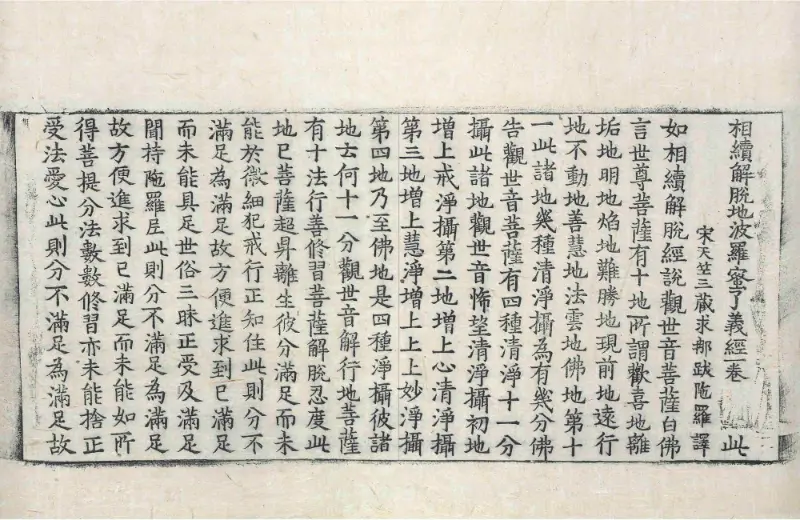 相續解脫地波羅蜜了義經卷 此
宋天竺三藏求那跋陁羅譯
如相續解脫經說觀世音菩薩白佛
言世尊菩薩有十地所謂歡喜地離
垢地明地焰地難勝地現前地遠行
地不動地善慧地法雲地佛地第十
一此諸地幾種清淨攝為有幾分佛
告觀世音菩薩有四種清淨十一分
攝此諸地觀世音悕望清淨攝初地
增上戒淨攝第二地增上心清淨攝
第三地增上慧淨增上上上妙淨攝
第四地乃至佛地是四種淨攝彼諸
地云何十一分觀世音解行地菩薩
有十法行善修習菩薩解脫忍度此
地已菩薩超昇離生彼分滿足而未
能於微細犯戒行正知住此則分不
滿足為滿足故方便進求到已滿足
而未能具足世俗三昧正受及滿足
聞持陁羅尼此則分不滿足為滿足
故方便進求到已滿足而未能如所
得菩提分法數數修習亦未能捨正
受法愛心此則分不滿足為滿足故